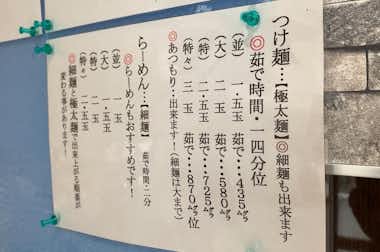 つけ麺…【極太麺】◎細麺も出来ます
◎茹で時間・一四分位
(並) 一・五玉 茹で…435㌘
(大) 二 玉 茹で…580㌘
(特) 二・五玉 茹で…725㌘
(特々) 三 玉 茹で…870㌘位
◎あつもり‥出来ます!(細麺は大まで)
らーめん…【細麺】 茹で時間・二分
◎らーめんもおすすめです!
(並) 一 玉
(大) 一・五玉
(特) 二 玉
(特々) 二・五玉
◎細麺と極太麺で出来上がる順番が
変わる事があります!